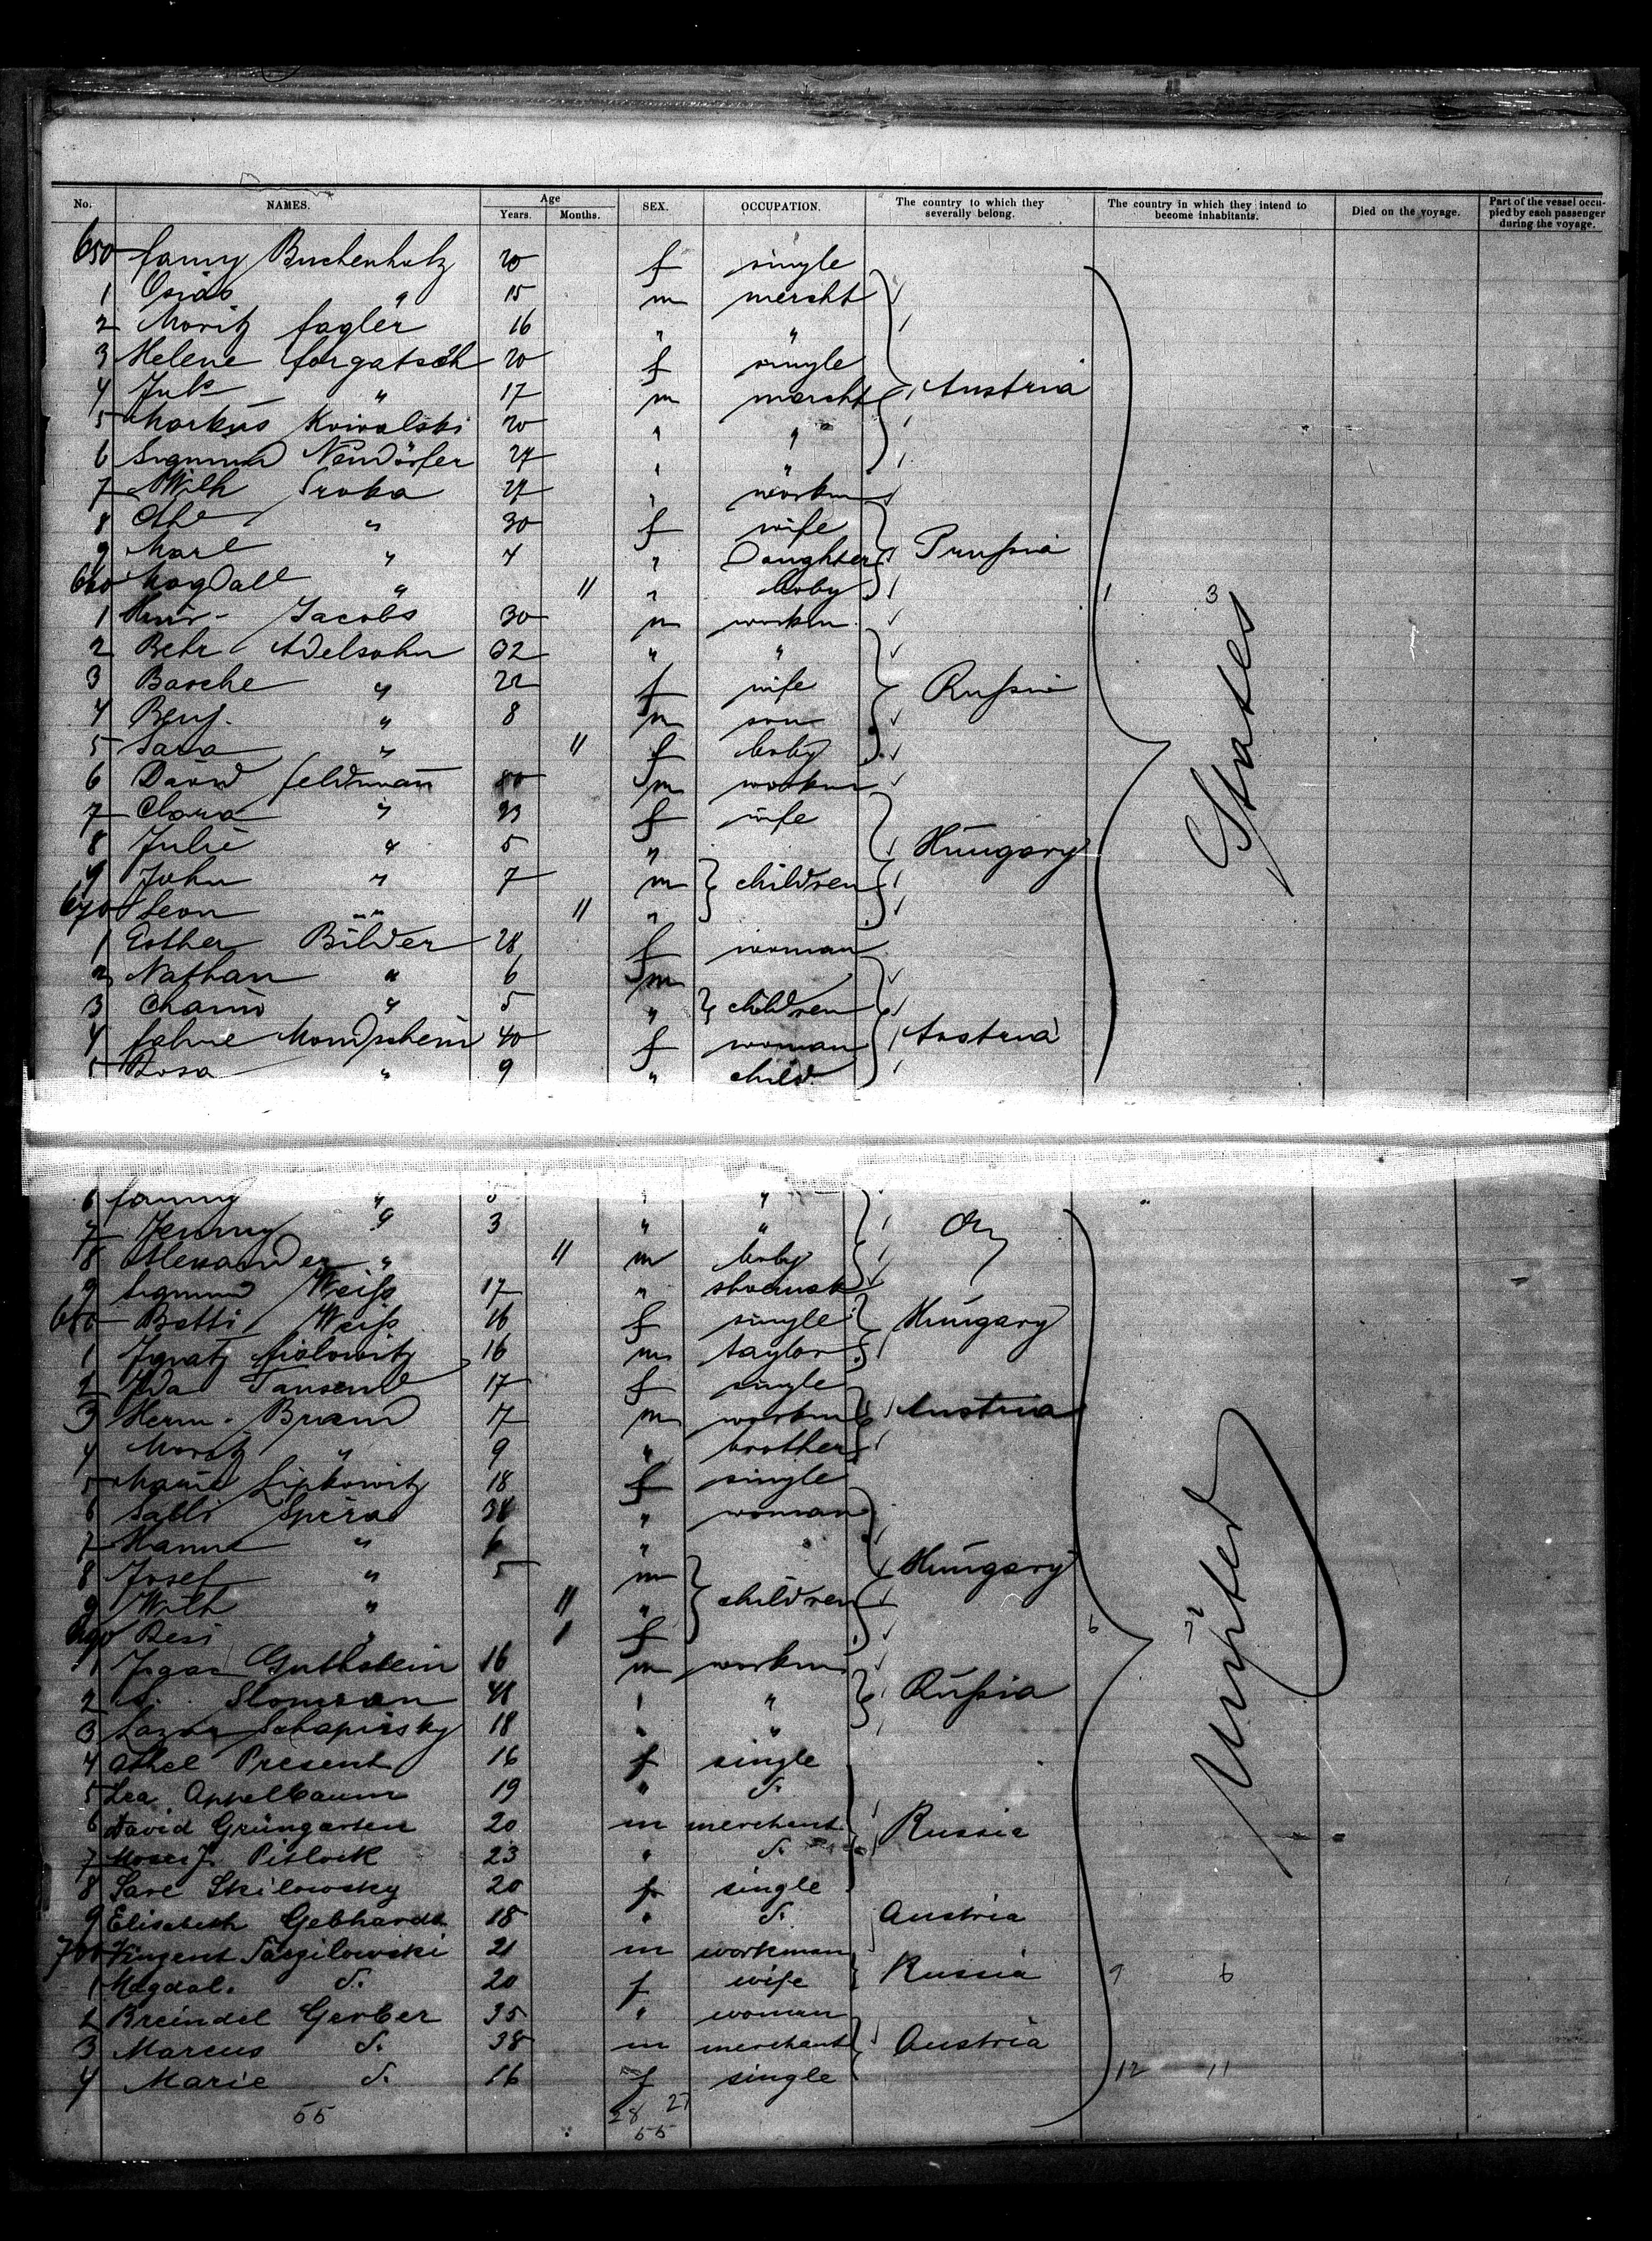 No. NAMES. Age Years. Months. SEX. OCCUPATION. The country to which they severally belong. The country in which they intend to become inhabitants. Died on the voyage. Part of the vessel occupied by each passenger during the voyage.
650 fanny Buchenholz 20 f single
1 Osias " 15 m mercht
2 Moritz fagler 16 " "
3 Helene forgatsch 20 f single
4 Juls " 17 m mercht Austria
5 Markus Kowalski 20 " "
6 Sigmund Neudörfer 27 " "
7 Wilh Sroka 27 " workm
8 " 30 f wife
9 Marl " 4 " Daughter Prussia
660 Magdall " 11 " baby 1 3
1 Jacobs 30 m workm
2 Behr Adelsohn 32 " "
3 Basche " 22 f wife Russia
4 Benj. " 8 m son
5 Sara " 11 f baby
6 David feldmann m workm
7 Clara " 23 f wife
8 Julie " 5 " Hungary
9 John " 7 m children
670 Leon " 11 "
1 Esther Bilder 28 f woman
2 Nathan " 6 m
3 " 5 " children
4 Mondschein 40 f woman Austria
5 Rosa " 9 " child
States
6 fanny " " "
7 Jenny " 3 " "
8 Alexander " 11 m baby
9 Sigmund Weiss 17 "
680 Betti Weiss 16 f single Hungary
1 Ignatz 16 m taylor
2 Ida 17 f single
3 Herm. 17 m workm Austria
4 Moritz " 9 " brother
5 Marie Lipkowitz 18 f single
6 Salli Spira " woman
7 " 6 "
8 Josef " 5 m Hungary
9 Wilh " 11 " children
690 Resi " f 6
1 Guthstein 16 m workm
2 48 " " Russia
3 Lazar Schapirsky 18 " "
4 Present 16 f single
5 Lea Appelbaum 19 " d.
6 David Grüngarten 20 m merchant Russia
7 Moses J. Pitlock 23 " d.
8 Sare Skilowsky 20 f single
9 Elisabeth Gebhardt 18 " d. Austria
700 Vinzent 21 m workman
1 Magdal. d. 20 f wife Russia 9 6
2 Breindel Gerber 35 " woman
3 Marcus d. 38 m merchant Austria
4 Marie d. 16 f single 12 11
United
55 28 27
55